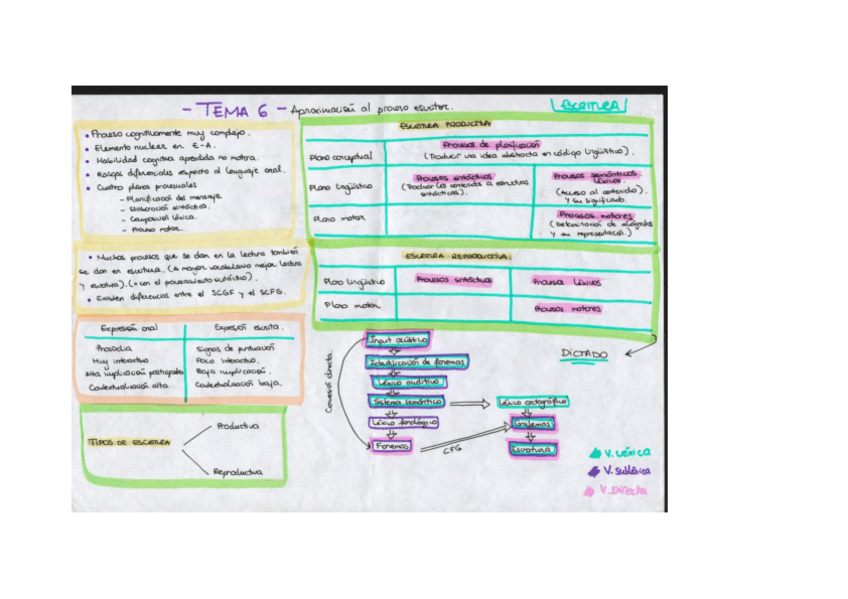 - TEMA 6 - Aproximación al proceso escritor.
ESCRITURA
• Proceso cognitivamente muy complejo.
• Elemento nuclear en E-A.
• Habilidad cognitiva aprendida no motora.
• Rasgos diferenciales respecto al lenguaje oral.
• Cuatro planos procesuales
- Planificación del mensaje
- Elaboración sintáctica.
- Composición léxica.
- Proceso motor.
• Muchos procesos que se dan en la lectura también
se dan en escritura. (A mayor vocabulario mejor lectura
y escritura). (= con el procesamiento sintáctico).
• Existen diferencias entre el SCGF y el SCFG.
Expresión oral
Expresión escrita.
Prosodia
Signos de puntuación
Muy interactivo
Poco interactivo.
Alta implicación participantes
Baja implicación.
Contextualización alta.
Contextualización baja.
TIPOS DE ESCRITURA
Productiva
Reproductiva
ESCRITURA PRODUCTIVA
Plano conceptual
Procesos de planificación
(Traducir una idea abstracta en código lingüístico).
Plano lingüístico
Procesos sintácticos
(Traducir los contenidos a estructuras
sintácticas).
Procesos semánticos
Léxicos.
(Acceso al contenido).
y su significado.
Plano motor
Procesos motores
(Determinación de alógrafos
y su representación.)
ESCRITURA REPRODUCTIVA.
Plano lingüístico
Procesos sintácticos
Procesos léxicos
Plano motor
Procesos motores
DICTADO
Input acústico
Identificación de fonemas
Léxico auditivo
Sistema semántico
Léxico fonológico
Fonemas
Conexión directa.
CFG
Léxico ortográfico
Grafemas
Escritura
V. Léxica
V. Subléxica
V. Directa